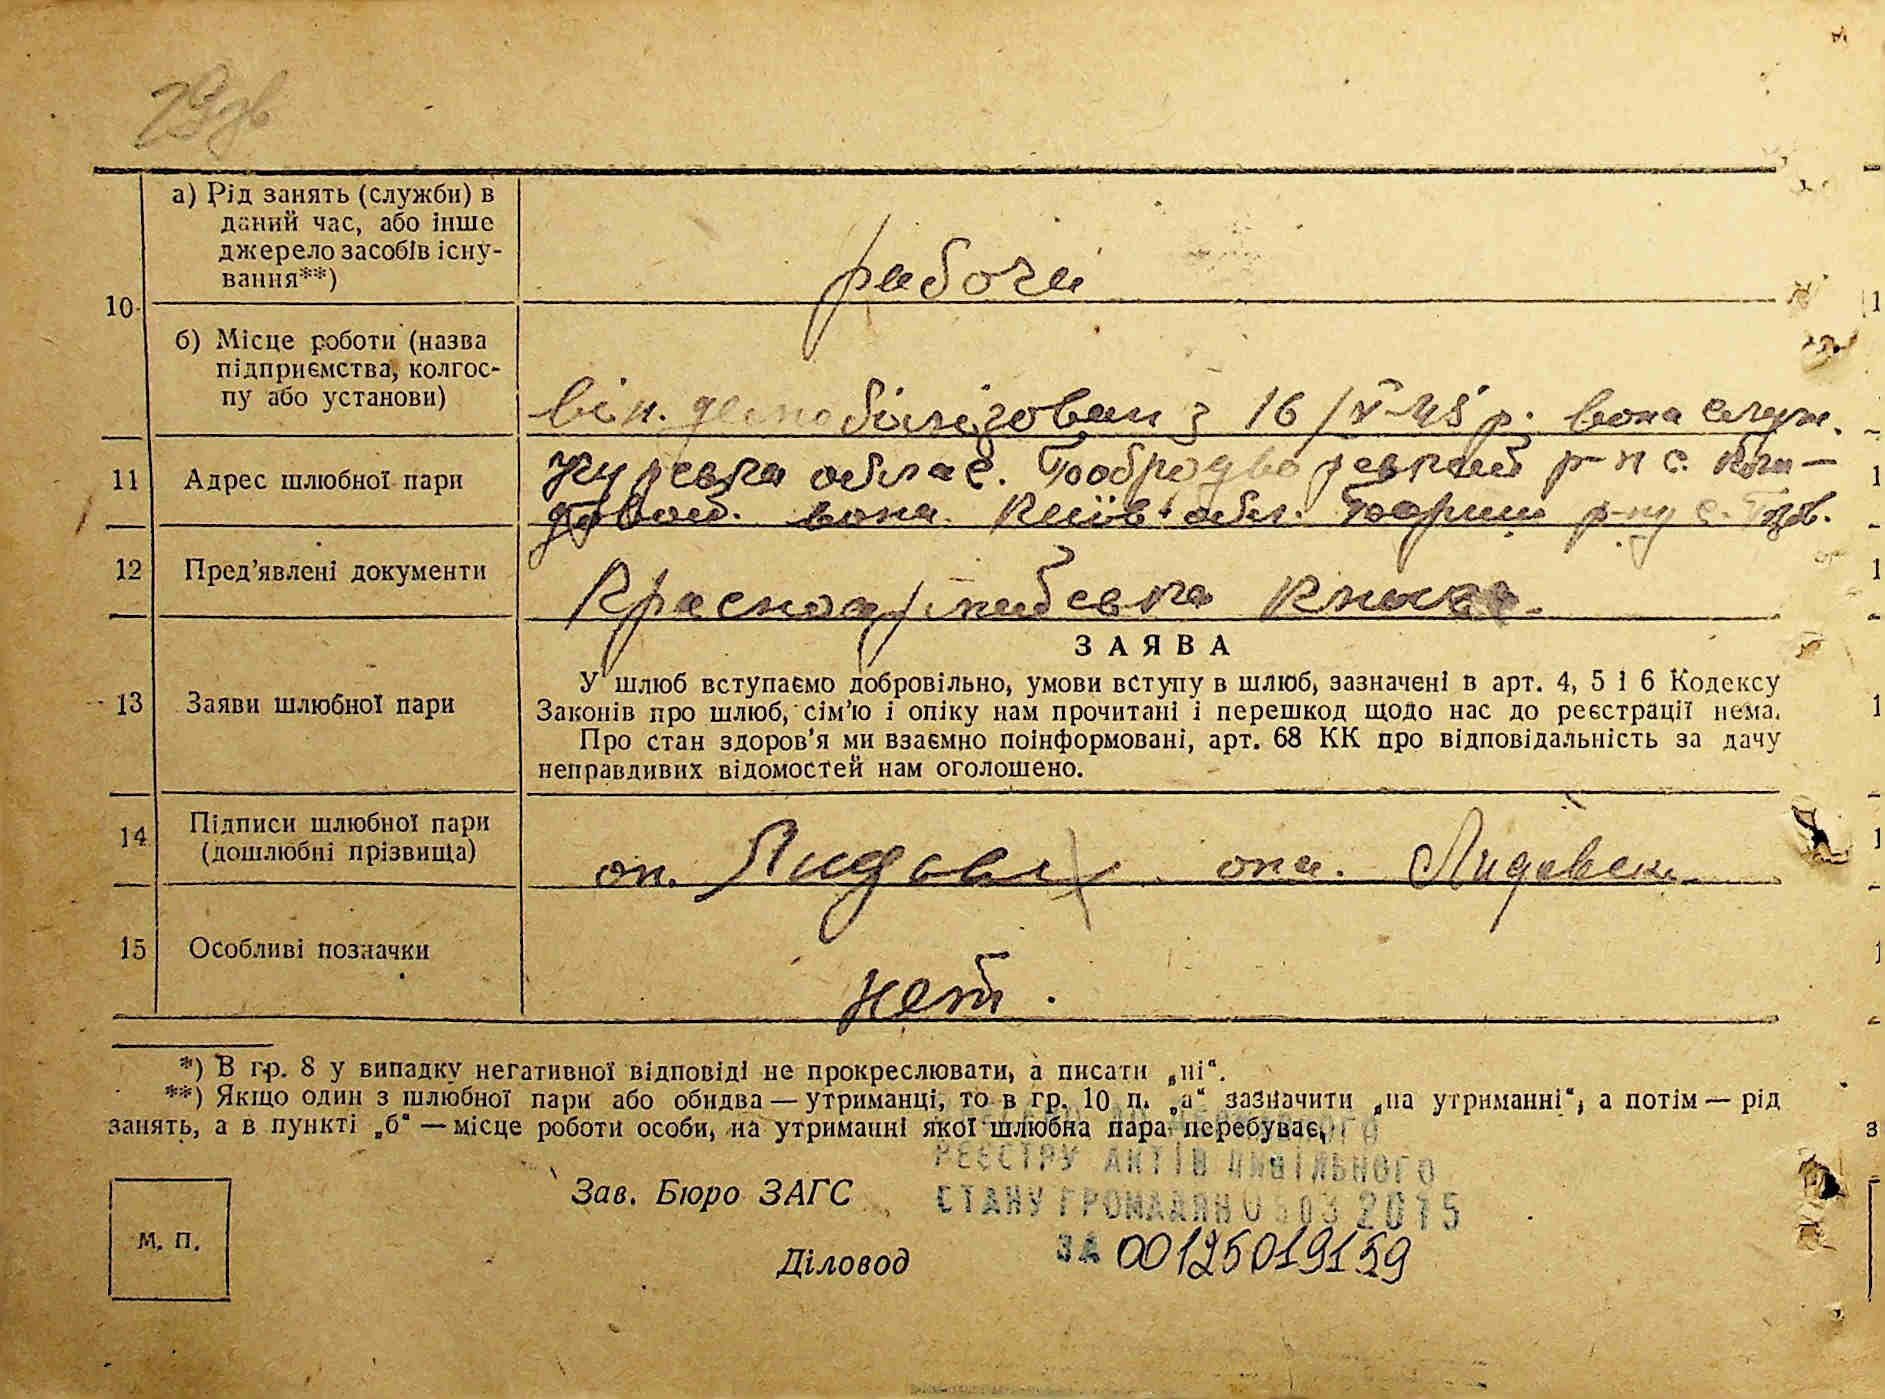 а) Рід занять (служби) в
даний час, або інше
джерело засобів існу-
вання**)
рабочи
10
б) Місце роботи (назва
підприємства, колгос-
пу або установи)
він. демобілізован з 16/V-45 р. вона
11 Адрес шлюбної пари
облас. р-н с.
вона. Київ. обл. р-ну с.
12 Пред'явлені документи
Красноармейска
ЗАЯВА
13 Заяви шлюбної пари
У шлюб вступаємо добровільно, умови вступу в шлюб, зазначені в арт. 4, 5 і 6 Кодексу
Законів про шлюб, сім'ю і опіку нам прочитані і перешкод щодо нас до реєстрації нема.
Про стан здоров'я ми взаємно поінформовані, арт. 68 КК про відповідальність за дачу
неправдивих відомостей нам оголошено.
14 Підписи шлюбної пари
(дошлюбні прізвища)
он. она.
15 Особливі позначки
нет.
*) В гр. 8 у випадку негативної відповіді не прокреслювати, а писати „ні“.
**) Якщо один з шлюбної пари або обидва — утриманці, то в гр. 10 п. „а“ зазначити „на утриманні“, а потім — рід
занять, а в пункті „б“ — місце роботи особи, на утриманні якої шлюбна пара перебуває.
РЕЄСТРУ АКТІВ ЦИВІЛЬНОГО
Зав. Бюро ЗАГС
СТАНУ ГРОМАДЯН 0503 2015
М. П.
Діловод
ЗА 00125019159